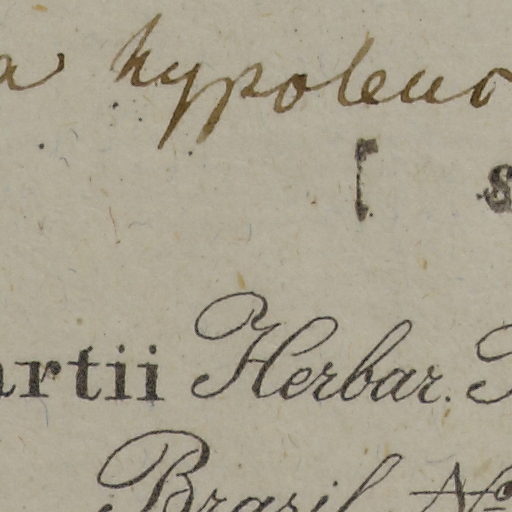 a hypoleuc
[ s
artii Herbar.
Brasil. No